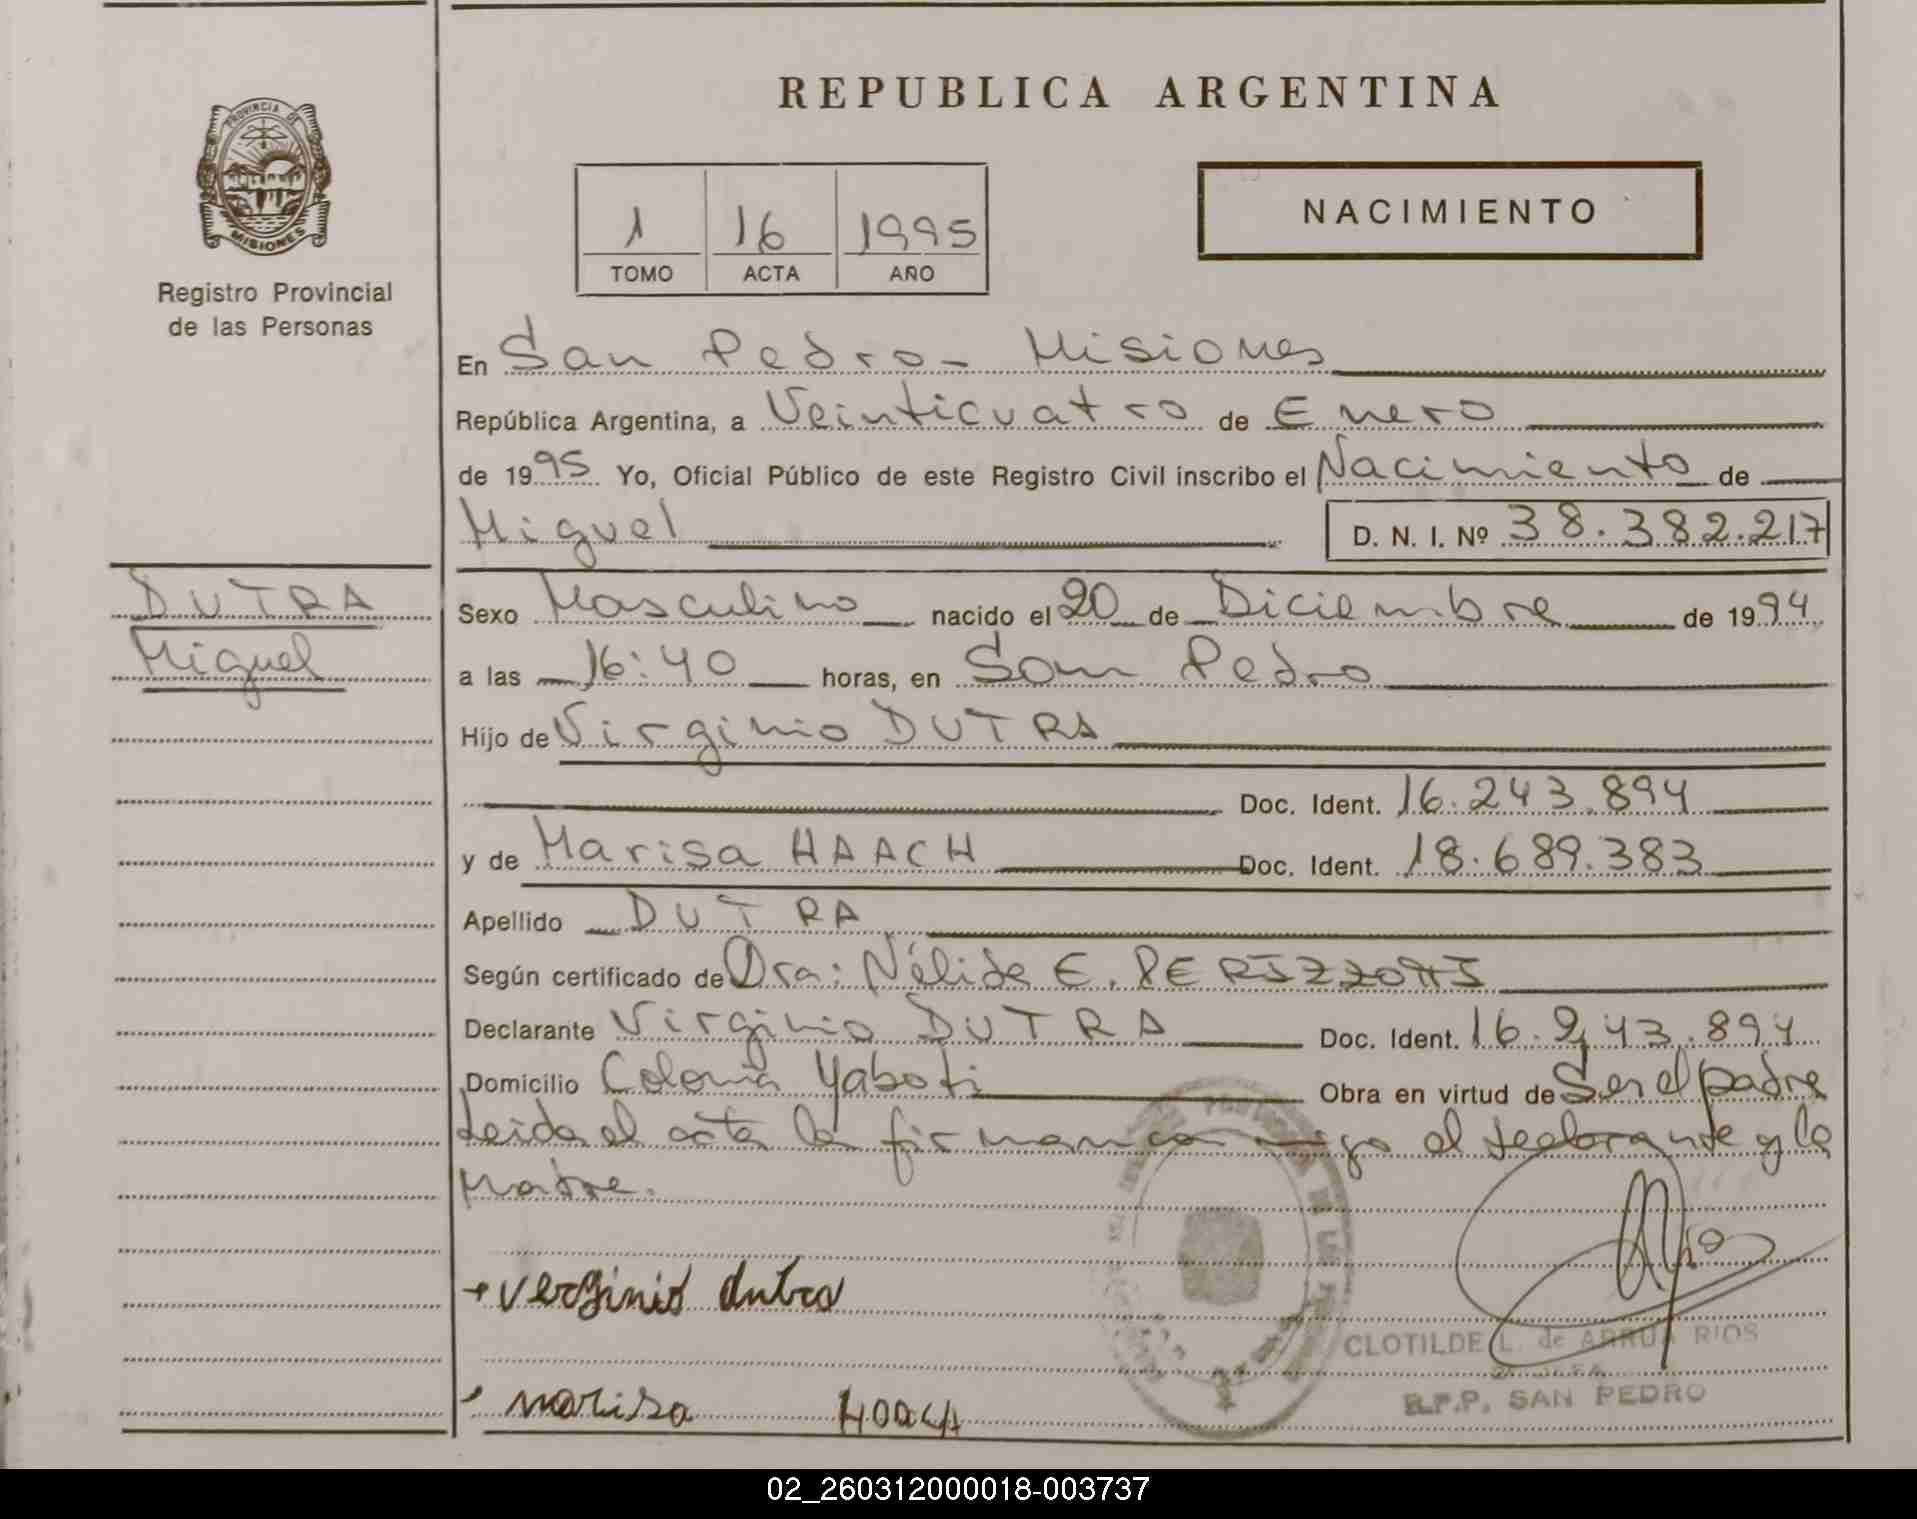 REPUBLICA ARGENTINA
PROVINCIA DE
MISIONES
Registro Provincial
de las Personas
1 16 1995
TOMO ACTA AÑO
NACIMIENTO
En San Pedro - Misiones
República Argentina, a Veinticuatro de Enero
de 1995 Yo, Oficial Público de este Registro Civil inscribo el Nacimiento de
Miguel D. N. I. Nº 38.382.217
DUTRA
Miguel
Sexo Masculino nacido el 20 de Diciembre de 1994
a las 16:40 horas, en San Pedro
Hijo de Virginio DUTRA
Doc. Ident. 16.243.894
y de Marisa HAACH Doc. Ident. 18.689.383
Apellido DUTRA
Según certificado de Dra: Nélida E.
Declarante Virginio DUTRA Doc. Ident. 16.243.894
Domicilio Colonia Yaboti Obra en virtud de Ser el padre
Leida el acta la firman conmigo el declarante y la
Madre.
verginio dutra
CLOTILDE L. de ARRUA RIOS
R.P.P. SAN PEDRO
marisa Haach
02_260312000018-003737